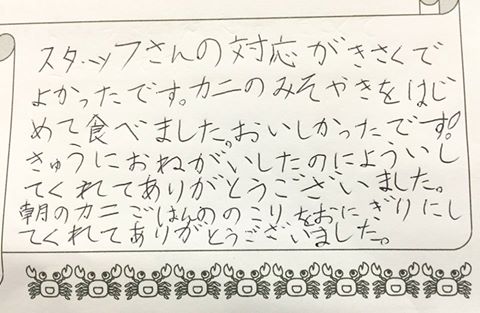 スタッフさんの対応がきさくで
よかったです。カニのみそやきをはじ
めて食べました。おいしかったです!
きゅうにおねがいしたのによういし
てくれてありがとうございました。
朝のカニごはんののこりをおにぎりにし
てくれてありがとうございました。